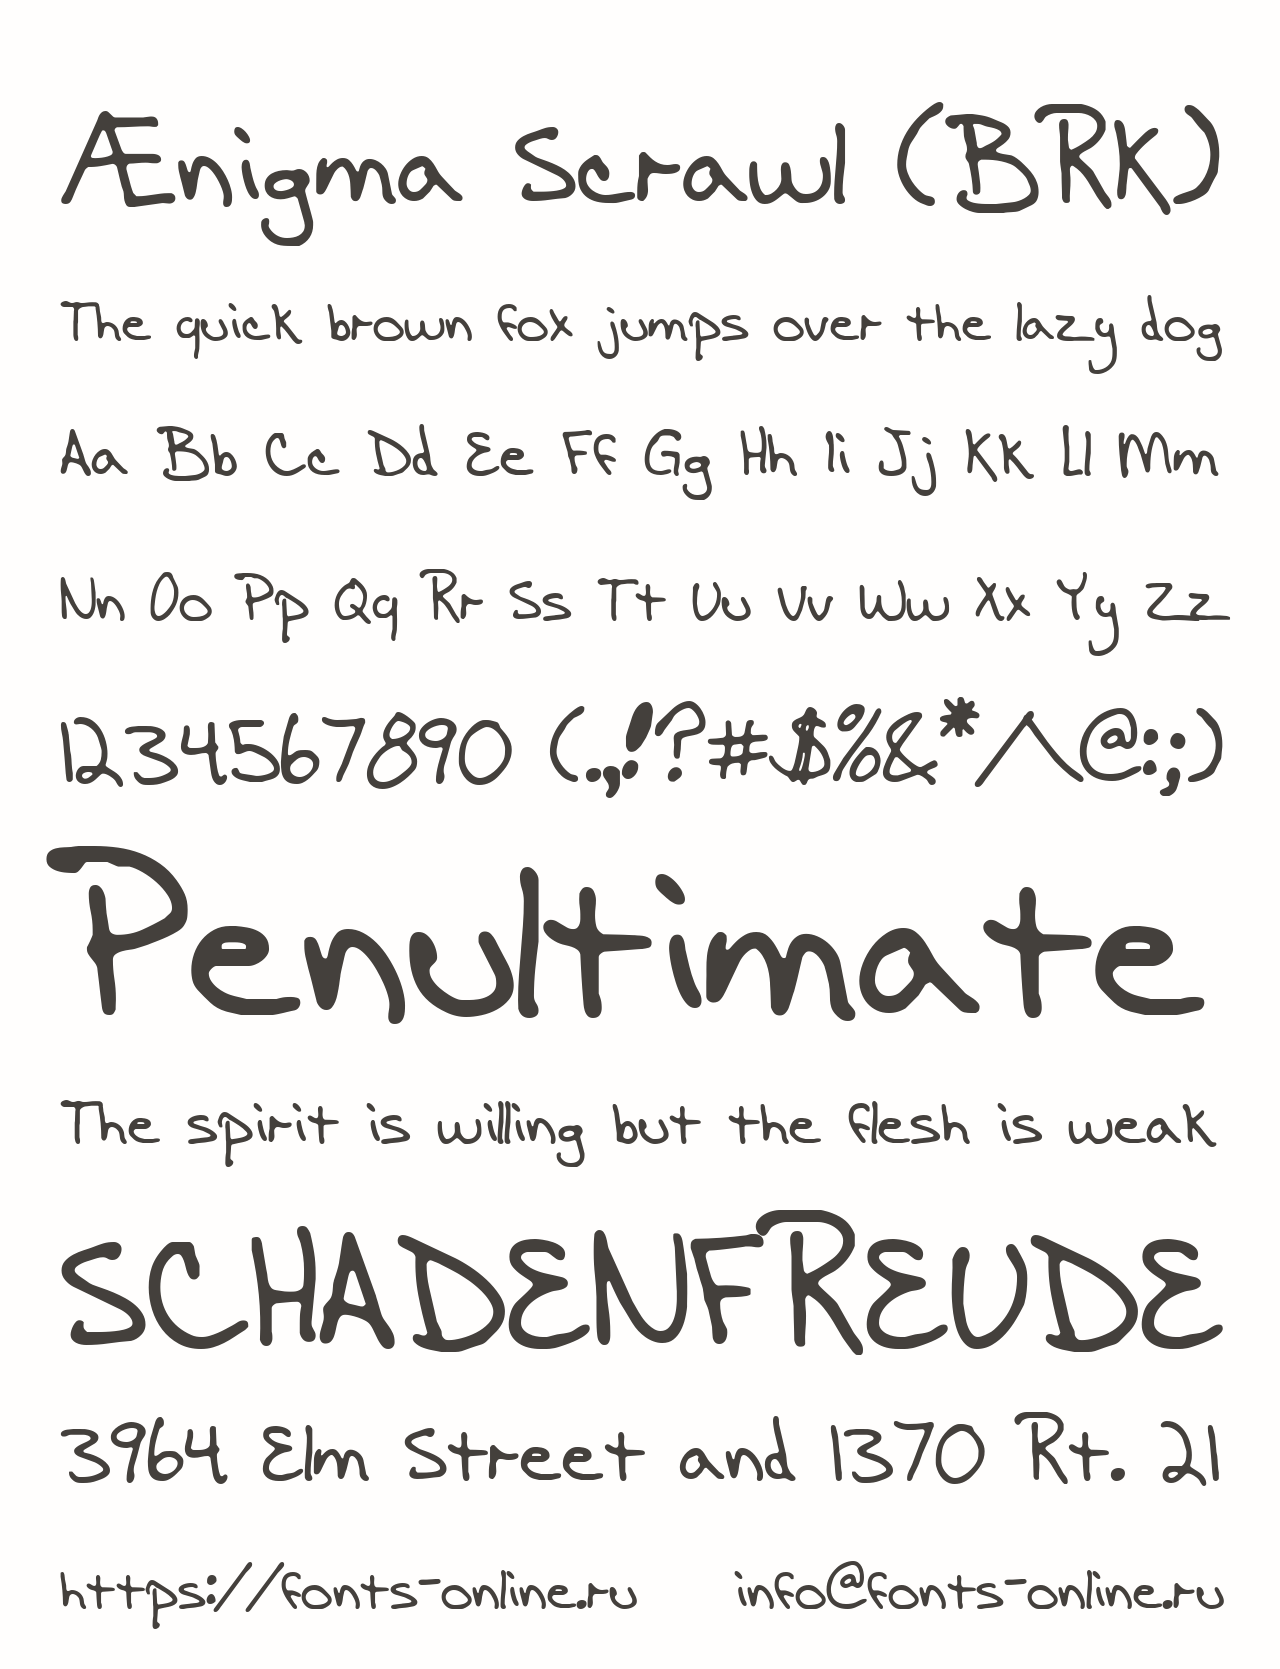 Ænigma Scrawl (BRK)
The quick brown fox jumps over the lazy dog
Aa Bb Cc Dd Ee Ff Gg Hh Ii Jj Kk Ll Mm
Nn Oo Pp Qq Rr Ss Tt Uu Vv Ww Xx Yy Zz
1234567890 (.,!?#$%&*/\@:;)
Penultimate
The spirit is willing but the flesh is weak
SCHADENFREUDE
3964 Elm Street and 1370 Rt. 21
https://fonts-online.ru info@fonts-online.ru